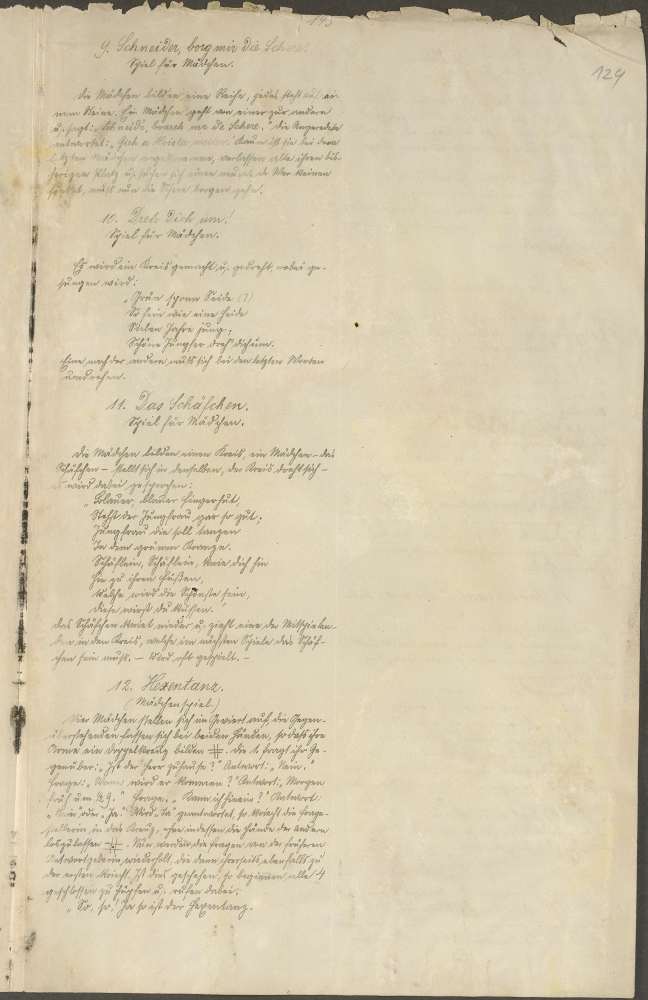 143
129
9. Schneider, borg mir die Schere!
Spiel für Mädchen.
Die Mädchen bilden eine Reihe, jedes steht auf ei-
nem Steine. Ein Mädchen geht von einer zur andern
u. sagt: „Schneide, me de Schere." Die Angeredete
antwortet: Kaum ist sie bei dem
letzten Mädchen angekommen, verlassen alle ihren bis-
herigen Platz u. suchen sich einen Wer keinen
findet, muß nun die Schere borgen gehn.
10. Dreh Dich um!
Spiel für Mädchen.
Es wird ein Kreis gemacht u. gedreht, wobei ge-
sungen wird:
„Grün sponn Seide (?)
So fein wie eine Heide
Sieben Jahre jung;
Schöne Jungfer dreh' dich um.
Eine nach der andern muß sich bei den letzten Worten
umdrehen.
11. Das Schäfchen.
Spiel für Mädchen.
Die Mädchen bilden einen Kreis, ein Mädchen – das
Schäfchen – stellt sich in denselben, der Kreis dreht sich –
es wird dabei gesprochen:
„Blauer, blauer Fingerhut,
Steht der Jungfrau gar so gut;
Jungfrau die soll tanzen
In dem grünen Kranze.
Schäflein, Schäflein, knie dich hin
Hin zu ihren Füßen,
Welche wird die Schönste sein,
Diese wirst du küssen."
Das Schäfchen kniet nieder u. zieht eine der Mitspielen-
den in den Kreis, welche im nächsten Spiele das Schäf-
chen sein muß. – Wird oft gespielt. –
12. Hexentanz.
(Mädchenspiel.)
Vier Mädchen stellen sich im Geviert auf, die Gegen-
überstehenden fassen sich bei beiden Händen, so daß ihre
Arme ein Doppelkreuz bilden. Die 1. fragt ihr Ge-
genüber: „Ist der Herr zuhause?" Antwort: „Nein."
Frage: „Wann wird er kommen?" Antwort: „Morgen
früh um ½ 9." Frage: „Kann ich hinein?" Antwort:
„Nein" oder „Ja." Wird „Ja" geantwortet, so kriecht die Frage-
stellerin in das Kreuz, ohne indessen die Hände der andern
loszulassen. Nun werden die Fragen von der früheren
Antwortgeberin wiederholt, die dann ihrerseits ebenfalls zu
der ersten kriecht. Ist das geschehen, so beginnen alle 4
geschlossen zu hüpfen u. rufen dabei:
„So, so, Ja so ist der Hexentanz.